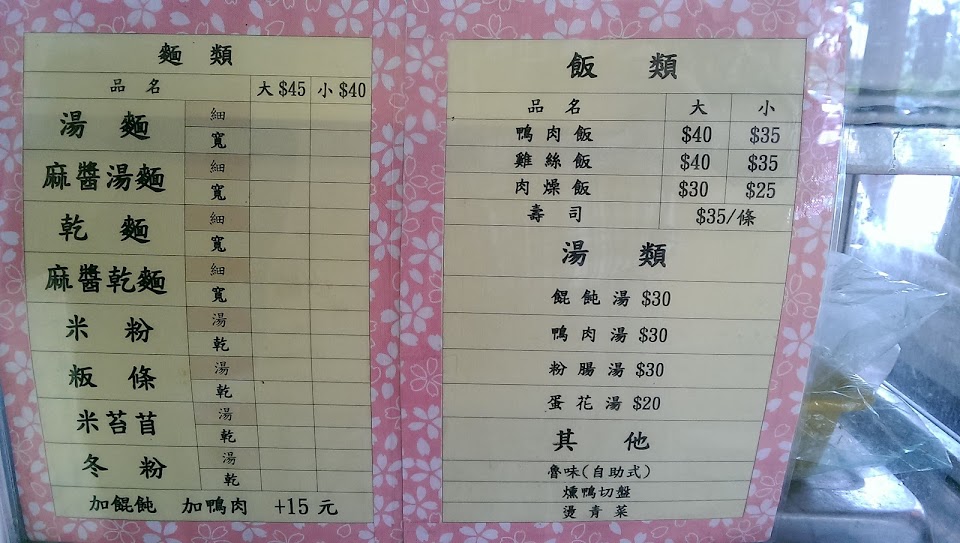 麵 類
品 名 大 $45 小 $40
湯 麵 細
寬
麻醬湯麵 細
寬
乾 麵 細
寬
麻醬乾麵 細
寬
米 粉 湯
乾
粄 條 湯
乾
米苔苜 湯
乾
冬 粉 湯
乾
加餛飩 加鴨肉 +15 元
飯 類
品 名 大 小
鴨 肉 飯 $40 $35
雞 絲 飯 $40 $35
肉 燥 飯 $30 $25
壽 司 $35/條
湯 類
餛 飩 湯 $30
鴨 肉 湯 $30
粉 腸 湯 $30
蛋 花 湯 $20
其 他
魯味(自助式)
燻鴨切盤
燙 青 菜